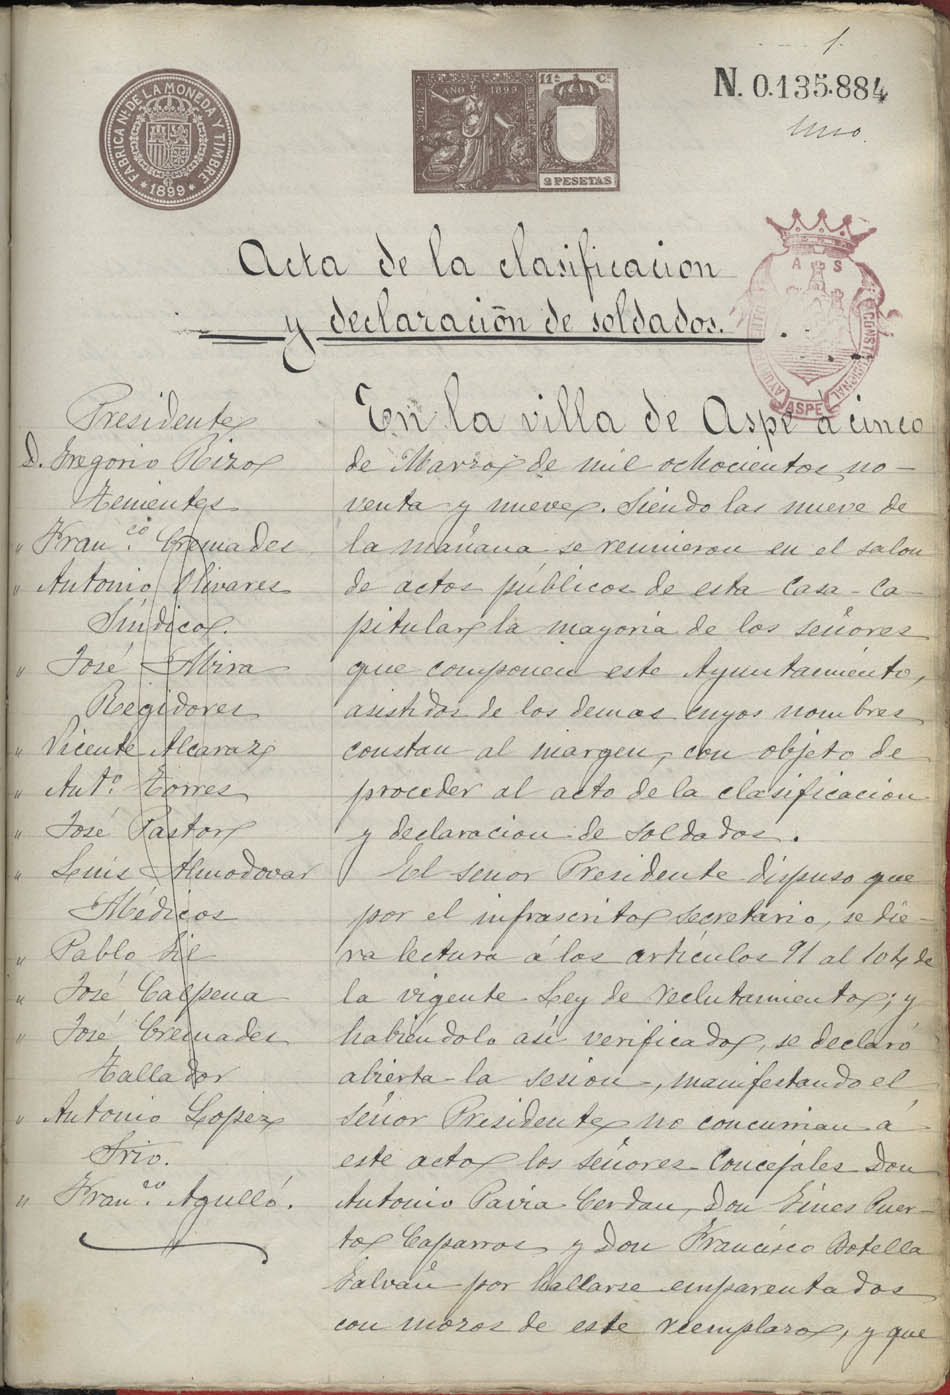 1.
FABRICA NAL DE LA MONEDA Y TIMBRE
* 1899 *
AÑO 1899
11ª Cᵉ
2 PESETAS
N. 0.135.884
Uno
Acta de la clasificacion
y declaración de soldados.
A S
AYUNTAMIENTO CONSTITUCIONAL
ASPE
Presidente
D. Gregorio Rizo
Tenientes
" Fran.co Cremades
" Antonio Olivares
Síndico.
" José Mira
Regidores
" Vicente Alcaraz
" Antº. Torres
" José Pastor
" Luis Almodovar
Médicos
" Pablo Gil
" José Calpena
" José Cremades
Tallador
" Antonio Lopez
Srio.
" Fran.co Agulló.
En la villa de Aspe á cinco
de Marzo de mil ochocientos no-
venta y nueve. Siendo las nueve de
la mañana se reunieron en el salon
de actos públicos de esta Casa-Ca-
pitular la mayoria de los señores
que componen este Ayuntamiento,
asistidos de los demas cuyos nombres
constan al margen, con objeto de
proceder al acto de la clasificacion
y declaracion de soldados.
El señor Presidente dispuso que
por el infrascrito secretario, se die-
ra lectura á los artículos 91 al 104 de
la vigente Ley de reclutamiento; y
habiéndolo así verificado, se declaró
abierta la sesion, manifestando el
señor Presidente no concurrian á
este acto los señores Concejales Don
Antonio Pavia Cerdan, Don Gines Puer-
to Caparros y Don Francisco Botella
Galván por hallarse emparentados
con mozos de este reemplazo, y que